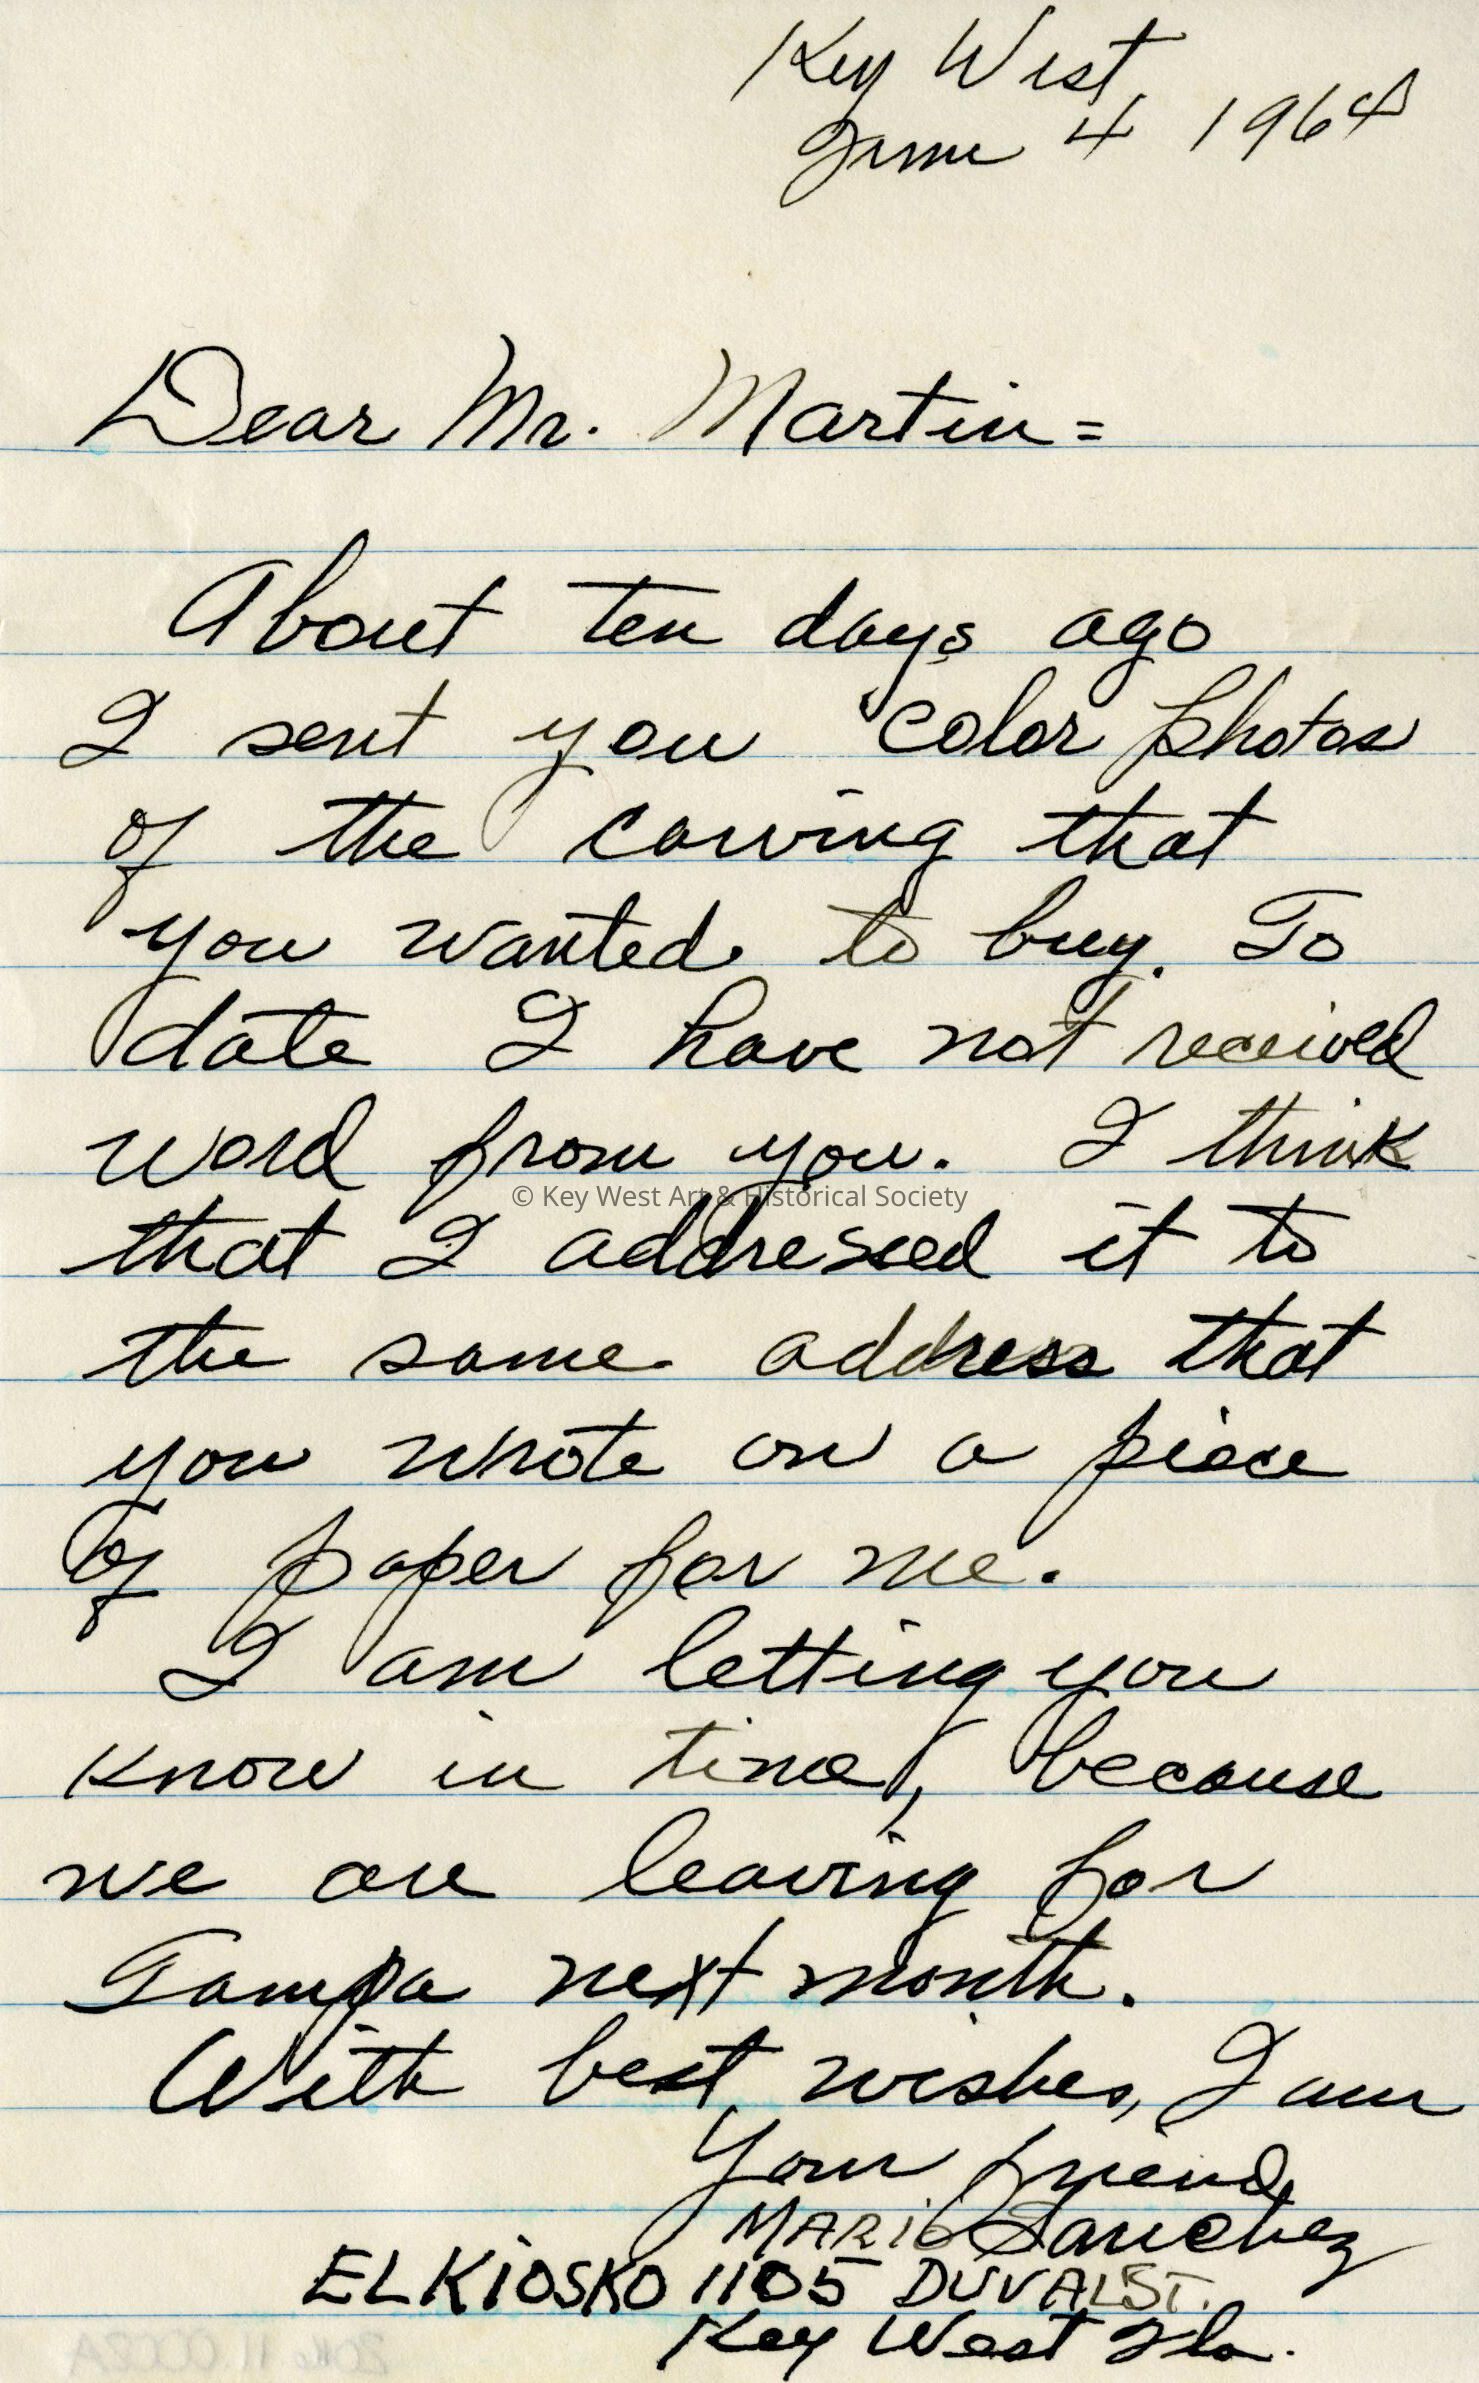 Key West,
June 4 1964
Dear Mr. Martin=
About ten days ago
I sent you color photos
of the carving that
you wanted to buy. To
date I have not received
word from you. I think
© Key West Art & Historical Society
that I addressed it to
the same address that
you wrote on a piece
of paper for me.
I am letting you
know in time, because
we are leaving for
Tampa next month.
With best wishes, I am
Your friend,
MARIO Sanchez
EL KIOSKO 1105 DUVAL ST.
Key West Fla.